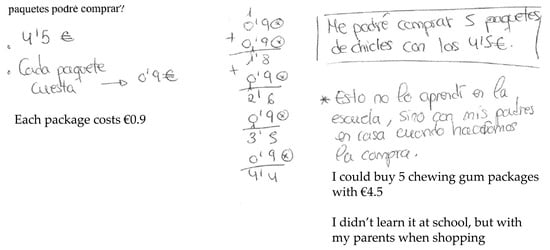 paquetes podré comprar?
• 4'5 €
• Cada paquete cuesta → 0'9 €
Each package costs €0.9
1
0'9
+ 0'9
1'8
+ 0'9
2'6
0'9
3'5
0'9
4'4
Me podré comprar 5 paquetes
de chicles con los 4'5€.
* Esto no lo aprendí en la
escuela, sino con mis padres
en casa cuando hacíamos
la compra.
I could buy 5 chewing gum packages
with €4.5
I didn't learn it at school, but with
my parents when shopping